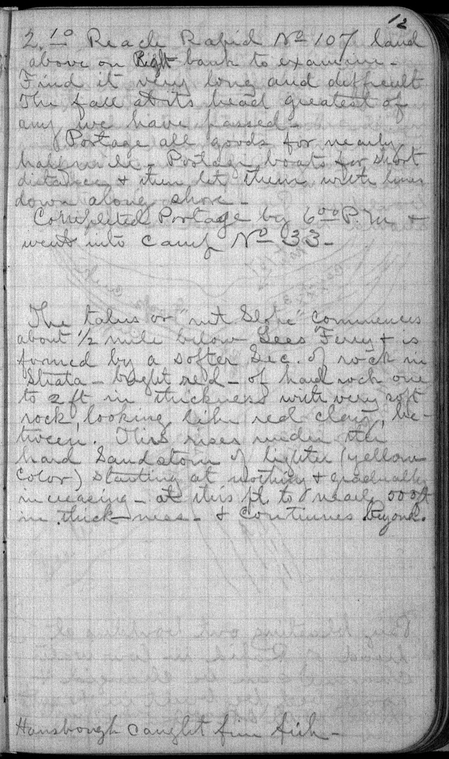 12
2.10 Reach Rapid No 107 land
above on Right bank to examine.
Find it very long and difficult
the fall at its head greatest of
any we have passed.
Portage all goods for nearly
half mile. Portage boats for short
distance & then let them with lines
down along shore -
Completed Portage by 6 00 P.M. &
went into Camp No 33 -
The talus or "nut Slope" commences
about 1/2 mile below Lees Ferry & is
formed by a softer Sec. of rock in
Strata - bright red - of hard rock one
to 2 ft in thickness with very soft
rock, looking like red clay, be-
tween. This rises under the
hard Sandstone of lighter (yellow
color) starting at nothing & gradually
increasing - at this pt to nearly 000 ft
in thick-ness - & continues beyond.
Hansbrough caught fine fish -